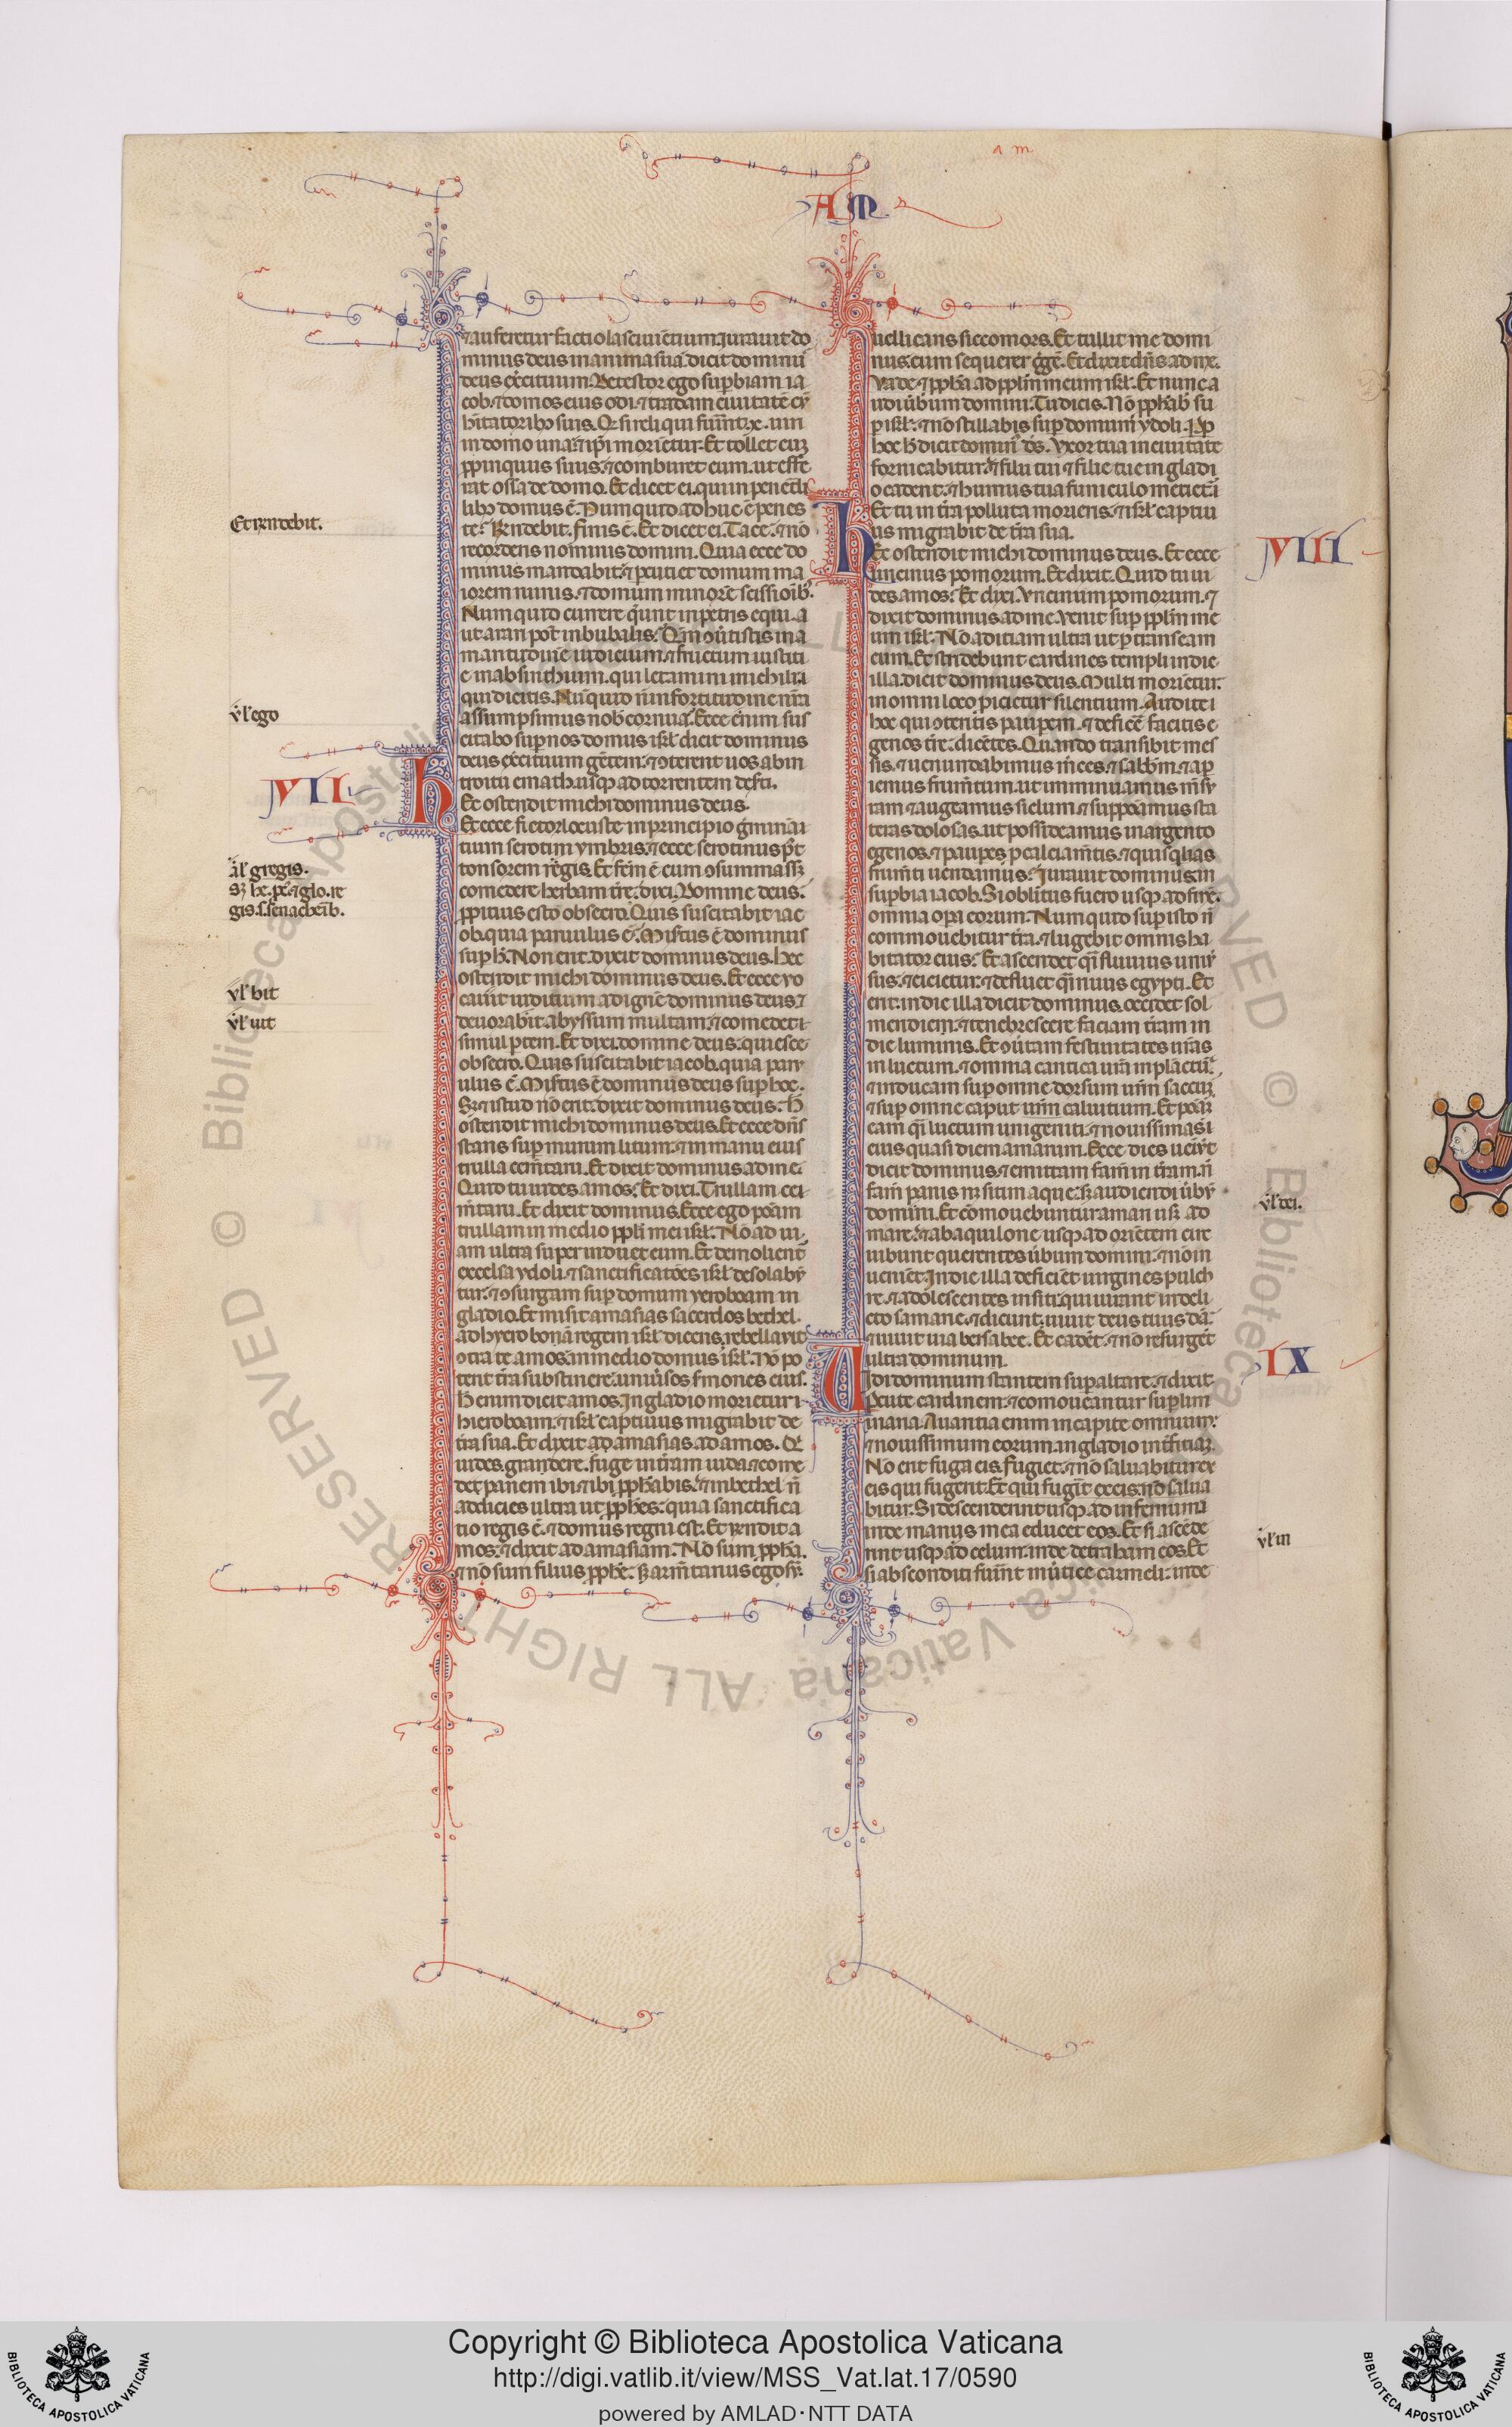 a m
AM
⁊ auferetur factio lasciuẽtium. Jurauit do
minus deus in anima sua. dicit dominus
deus exẽrcituum. Detestor ego supbiam ia
cob. ⁊ domos eius odi. ⁊ tradam ciuitatẽ cũ
hĩtatoribꝫ suis. Qꝫ si reliqui fuẽrint .x. uiri
in domo una. ⁊ ipi morientur. Et tollet eum
ppinquus suus. ⁊ comburet eum. ut effe
rat ossa de domo. Et dicet ei. qui in penetrali
libꝫ domus ẽ. Numquid adhuc ẽ penes
te? Rndebit. finis ẽ. Et dicet ei. Tace. ⁊ nõ
recorderis nominis domini. Quia ecce do
minus mandabit. ⁊ pcutiet domum ma
iorem ruinis. ⁊ domum minorẽ scissioibꝫ.
Numquid currere q̃unt in petris equi. a
ut arari põt in bubalis. Qm̃ ꝯũtistis in a
maritudinẽ iudicium. ⁊ fructum iusticị
e in absinthium. qui letamini in nichili.
qui dicitis. Nũquid ñ in fortitudine nr̃a
assumpsimus nob cornua. Ecce enim sus
citabo sup nos domus isrl̃. dicit dominus
deus exẽrcituum gẽtem. ⁊ ꝯterent uos ab in
troitu emath. usqꝫ ad torrentem deserti.
Et rñdebit.
ul̃ ego
VII
Hec ostendit michi dominus deus.
Et ecce fictor locuste in principio gm̃inan
tium serotini ymbris. ⁊ ecce serotinus pt
tonsorem regis. Et fcm̃ ẽ cum ꝯsummassꝫ
comedere herbam tr̃e. dixi. Domine deus.
ppitius esto obsecro. Quis suscitabit iac
ob. quia paruulus ẽ. Misertus ẽ dominus
sup h̃. Non erit. dixit dominus deus. Hec
ostendit michi dominus deus. Et ecce uo
cauit iudicium ad ignẽ dominus deus. ⁊
deuorabit abyssum multam. ⁊ comedet i
simul ptem. Et dixi. domine deus. quiesce
obsecro. Quis suscitabit iacob. quia paru
ulus ẽ. Misertus ẽ dominus deus sup hoc.
Sꝫ ⁊ istud nõ erit. dixit dominus deus. H̃
ostendit michi dominus deus. Et ecce dñs
stans sup murum litum. ⁊ in manu eius
trulla cem̃tarii. Et dixit dominus ad me.
Quid tu uides amos? Et dixi. Trullam ce
m̃tarii. Et dixit dominus. Ecce ego ponam
trullam in medio ppli mei isrl̃. Nõ ad ici
am ultra superinducere eum. Et demolient
excelsa ydoli. ⁊ sanctificatões isrl̃ desolabũ
tur. ⁊ ꝯsurgam sup domum yeroboam in
gladio. Et misit amasias sacerdos bethel
ad hyeroboam regem isrl̃ dicens. rebellauit
ꝯtra te amos. in medio domus isrl̃. Nõ po
terit tr̃a substinere. uniũsos sermones eius.
Hec enim dicit amos. In gladio morietur
hieroboam. ⁊ isrl̃ captiuus migrabit de
tr̃a sua. Et dixit ad amasias ad amos. Q
uides. gradere. fuge in tr̃am iuda. ⁊ come
det panem ibi. ⁊ ibi pphetabis. ⁊ in bethel ñ
addicies ultra ut pphes. quia sanctifica
tio regis ẽ. ⁊ domus regni est. Et rñdit a
mos. ⁊ dixit ad amasiam. Nõ sum ppha.
⁊ nõ sum filius pphe. sꝫ arm̃tarius ego sũ.
al̃ gregis.
ul̃ bit
ul̃ uit
uellicans siccomoros. Et tulit me domi
nus. cum sequerer gregẽ. Et dixit dñs ad me.
Vade ⁊ ppha ad pplm̃ meum isrl̃. Et nunc a
udi ũbum domini. Tu dicis. Nõ pphab̃ su
p isrl̃. ⁊ nõ stillabis sup domum ydoli. Pp
hoc h̃ dicit dominus ds̃. Vxor tua in ciuitate
fornicabitur. ⁊ filii tui ⁊ filie tue in gladi
o cadent. ⁊ humus tua funiculo metiet̃.
Et tu in tr̃a polluta morieris. ⁊ isrl̃ captiu
us migrabit de tr̃a sua.
VIII
Hec ostendit michi dominus deus. Et ecce
uncinus pomorum. Et dixit. Quid tu ui
des amos? Et dixi. Vncinum pomorum. ⁊
dixit dominus ad me. Venit sup pplm̃ me
um isrl̃. Nõ adiciam ultra ut ptranseam
eum. Et stridebunt cardines templi in die
illa. dicit dominus deus. Multi morient̃.
in omni loco picietur silentium. Audite i
hoc qui ꝯteritis paupem. ⁊ deficẽ facitis e
genos tr̃e. dicẽtes. Quando transibit mes
sis. ⁊ uenundabimus mces. ⁊ sabbm̃. ⁊ ap
iemus frum̃tum. ut imminuamus mensu
ram ⁊ augeamus siclum. ⁊ supponamus sta
teras dolosas. ut possideamus in argento
egenos. ⁊ paupes p calciam̃tis. ⁊ quisqlias
frum̃ti uendamus. Jurauit dominus in
supbia iacob. Si oblitus fuero usqꝫ ad fine
omnia opa eorum. Numquid sup isto ñ
commouebitur tr̃a. ⁊ lugebit omnis ha
bitator eius. Et ascendet qi fluuius uniũ
sus. ⁊ eicietur. ⁊ defluet qi riuus egypti. Et
erit in die illa dicit dominus. occidet sol
meridiem. ⁊ tenebrescere faciam tr̃am in
die luminis. Et ꝯũtam festiuitates ur̃as
in luctum. ⁊ omnia cantica ur̃a in planctũ.
⁊ inducam sup omne dorsum ur̃m saccum
⁊ sup omne caput ur̃m caluitium. Et ponã
eam qi luctum unigeniti. ⁊ nouissima
eius quasi diem amarum. Ecce dies ueniũt
dicit dominus. ⁊ emittam famẽ in tr̃am. ñ
famẽ panis nꝫ sitim aque. sꝫ audiendi ũbũ
domini. Et cõmouebuntur a mari usqꝫ ad
mare. ⁊ ab aquilone usqꝫ ad orientem circ
uibunt querentes ũbum domini. ⁊ nõ in
uenient. In die illa deficiẽt uirgines pulch
re. ⁊ adolescentes in siti. qui iurant in deli
cto samarie. ⁊ dicunt. uiuit deus tuus dã.
⁊ uiuit uia bersabee. Et cadẽt. ⁊ nõ resurgẽt
ultra dominum.
ul̃ dei.
IX
Vidi dominum stantem sup altare. ⁊ dixit.
Pcute cardinem. ⁊ cõmoueantur suplim
inaria. Auaritia enim in capite omnium.
⁊ nouissimum eorum in gladio int̃ficiaꝫ.
Nõ erit fuga eis. Fugiet. ⁊ nõ saluabitur ex
eis qui fugerit. Et qui fugĩt ex eis. nõ salua
bitur. Si descenderint usqꝫ ad infernum
inde manus mea educet eos. Et si ascẽde
rint usqꝫ ad celum. inde detraham eos. Et
si absconditi fuẽrint in ũtice carmeli. inde
ul̃ in
Copyright © Biblioteca Apostolica Vaticana
http://digi.vatlib.it/view/MSS_Vat.lat.17/0590
powered by AMLAD·NTT DATA
BIBLIOTECA APOSTOLICA VATICANA
BIBLIOTECA APOSTOLICA VATICANA